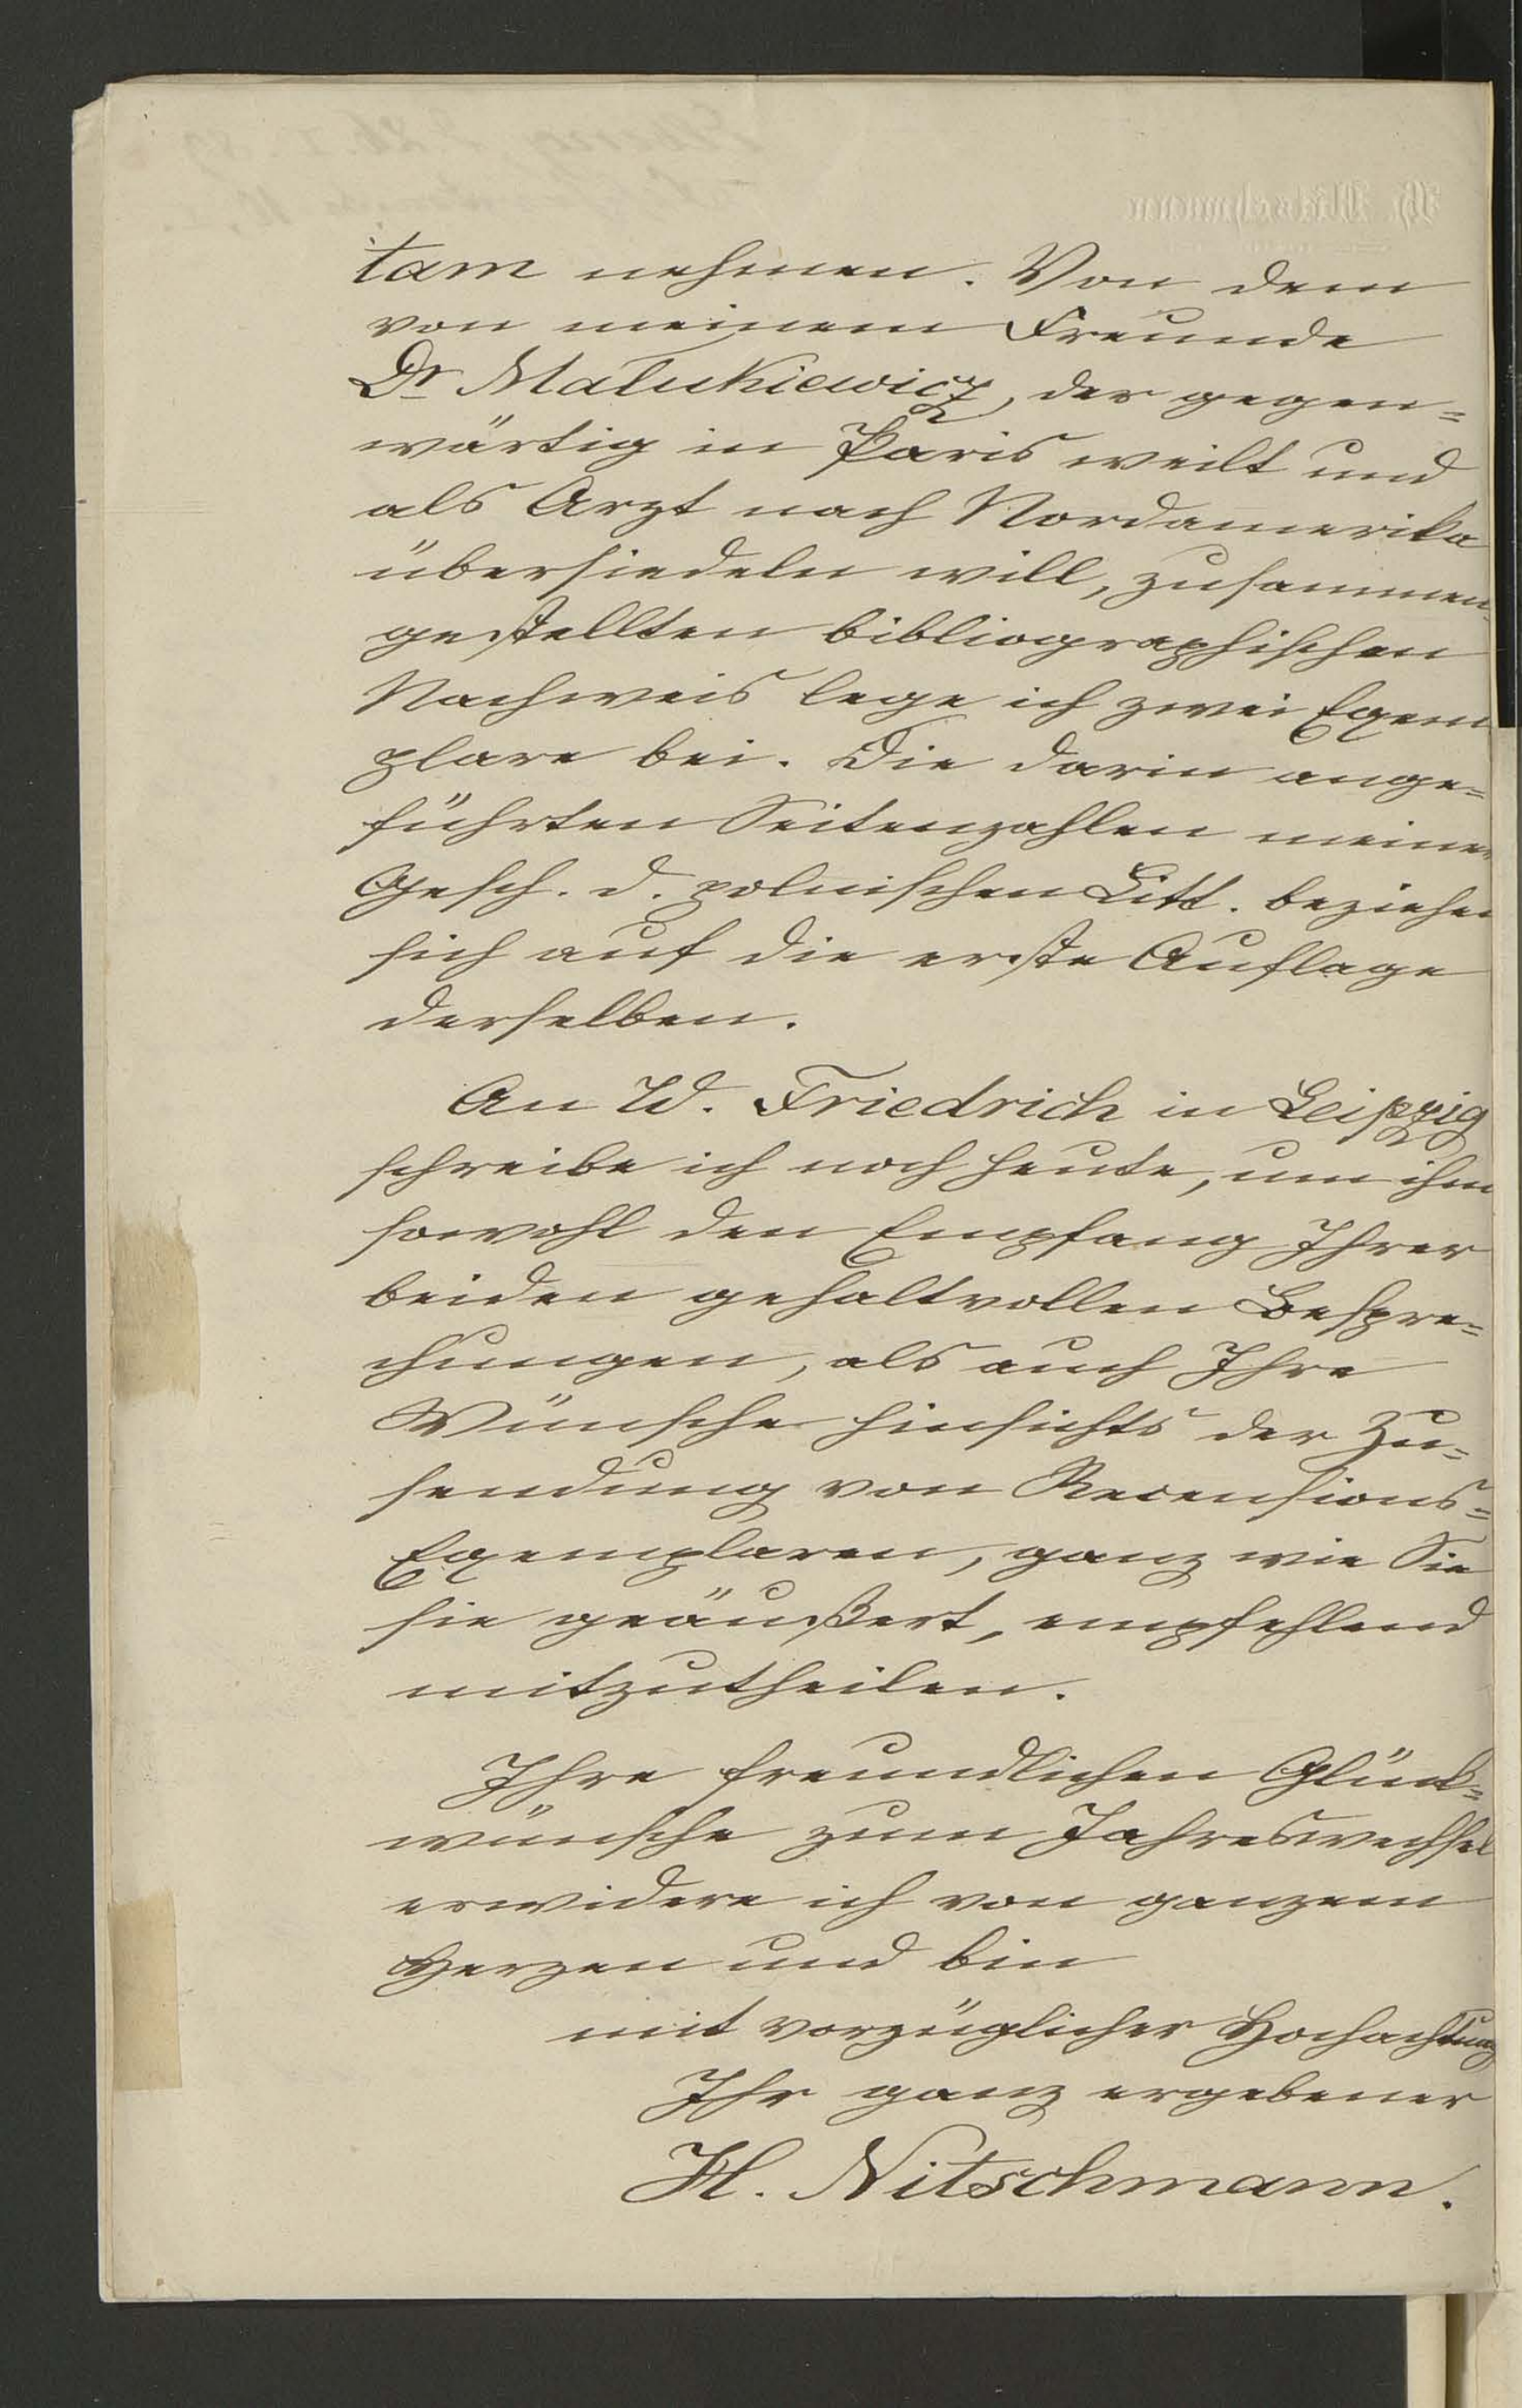 tam nehmen. Von dem
von meinem Freunde
Dr Malukiewicz, der gegen=
wärtig in Paris weilt und
als Arzt nach Nordamerika
übersiedeln will, zusammen=
gestellten bibliographischen
Nachweis lege ich zwei Exem
plare bei. Die darin ange=
führten Seitenzahlen meiner
Gesch. d. polnischen Litt. beziehen
sich auf die erste Auflage
derselben.
An W. Friedrich in Leipzig
schreibe ich noch heute, um ihm
sowohl den Empfang Ihrer
beiden gehaltvollen Bespre=
chungen, als auch Ihre
Wünsche hinsichts der Zu=
sendung von Recensions=
Exemplaren, ganz wie Sie
sie geäußert, empfehlend
mitzutheilen.
Ihre freundlichen Glück=
wünsche zum Jahreswechsel
erwidere ich von ganzem
Herzen und bin
mit vorzüglicher Hochachtung
Ihr ganz ergebener
H. Nitschmann.